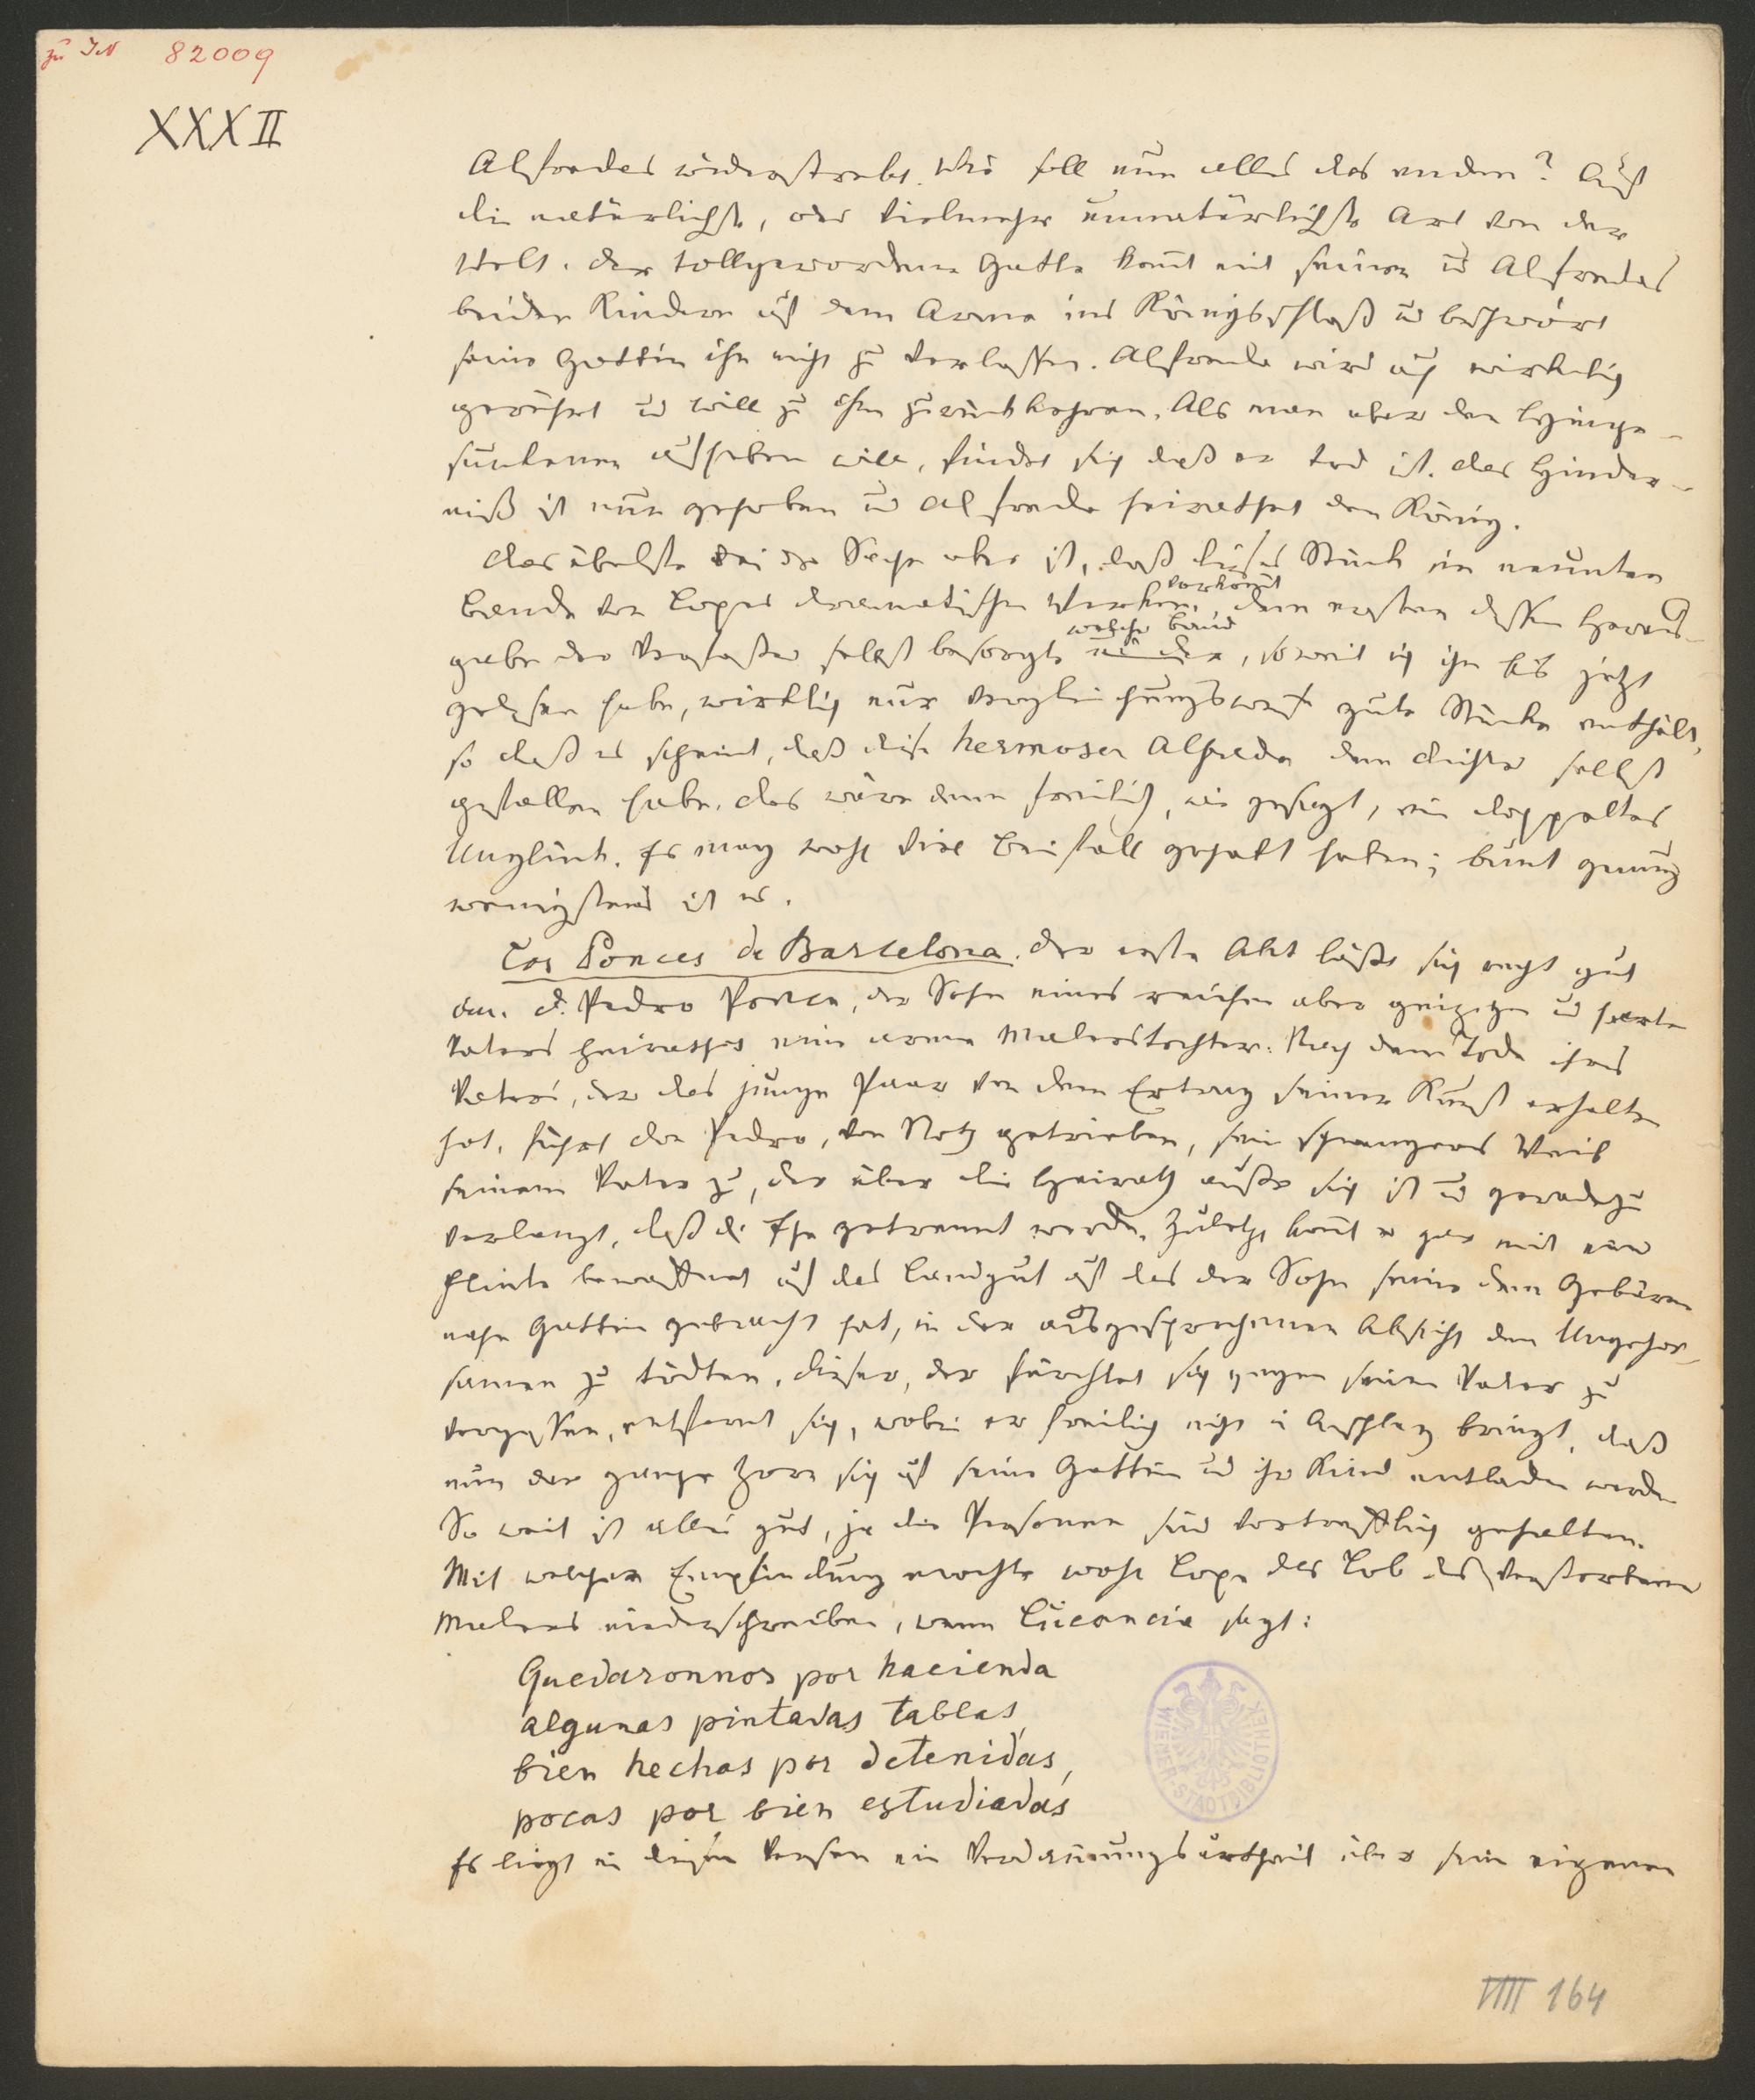 zu IN 82009
XXXII
Alfredas widerstrebt. Wie soll nun alles das enden? Auf
die natürlichste, oder vielmehr unnatürlichste Art von der
Welt. Der tollgewordene Gatte kom̄t mit seinen u Alfredas
beiden Kindern auf dem Arme ins Königsschloß u beschwört
seine Gattin ihn nicht zu verlassen. Alfreda wird auch wirklich
gerührt und will zu ihm zurückkehren. Als man aber den Hinge-
sunkenen aufheben will, findet sich daß er tod ist. Das Hinder-
niß ist nun gehoben u Alfreda heirathet den König.
Das übelste bei der Sache aber ist, daß dieses Stück im neunten
vorkom̄t
Bande von Lopes dramatischen Werken, dem ersten dessen Heraus-
welcher Band
gabe der Verfasser selbst besorgte und der, soweit ich ihn bis jetzt
gelesen habe, wirklich nur vergleichungsweise gute Stücke enthält,
so daß es scheint, daß diese hermosa Alfreda dem Dichter selbst
gefallen habe. Das wäre denn freilich, wie gesagt, ein doppeltes
Unglück. Es mag wohl viel Beifall gehabt haben; bunt genug
wenigstens ist es.
Los Ponces de Barcelona. Der erste Akt läßt sich recht gut
an. D. Pedro Ponce, der Sohn eines reichen aber geizigen u harten
Vaters heirathet eine arme Malerstochter. Nach dem Tode ihres
Vaters, der das junge Paar von dem Ertrag seiner Kunst erhalten
hat, führt don Pedro, von Noth getrieben, sein schwangeres Weib
seinem Vater zu, der über die Heirath außer sich ist u geradezu
verlangt, daß die Ehe getrennt werde. Zuletzt kom̄t er gar mit einer
Flinte bewaffnet auf das Landgut auf das der Sohn seine dem Gebären
nahe Gattin gebracht hat, in der ausgesprochenen Absicht den Ungehor-
samen zu tödten. Dieser, der fürchtet sich gegen seinen Vater zu
vergessen, entfernt sich, wobei er freilich nicht in Anschlag bringt, daß
nun der ganze Zorn sich auf seine Gattin u ihr Kind entladen werde
So weit ist alles gut, ja die Personen sind vortrefflich gehalten.
Mit welcher Empfindung mochte wohl Lope das Lob des verstorbenen
Malers niederschreiben, wenn Lucancia sagt:
Quedaronnos por hacienda
algunas pintadas tablas,
bien hechas por detenidas,
pocas por bien estudiadas
Es liegt in diesen Versen ein Verdam̄ungsurtheil über sein eigenes
WIENER STADTBIBLIOTHEK
VIIII 164